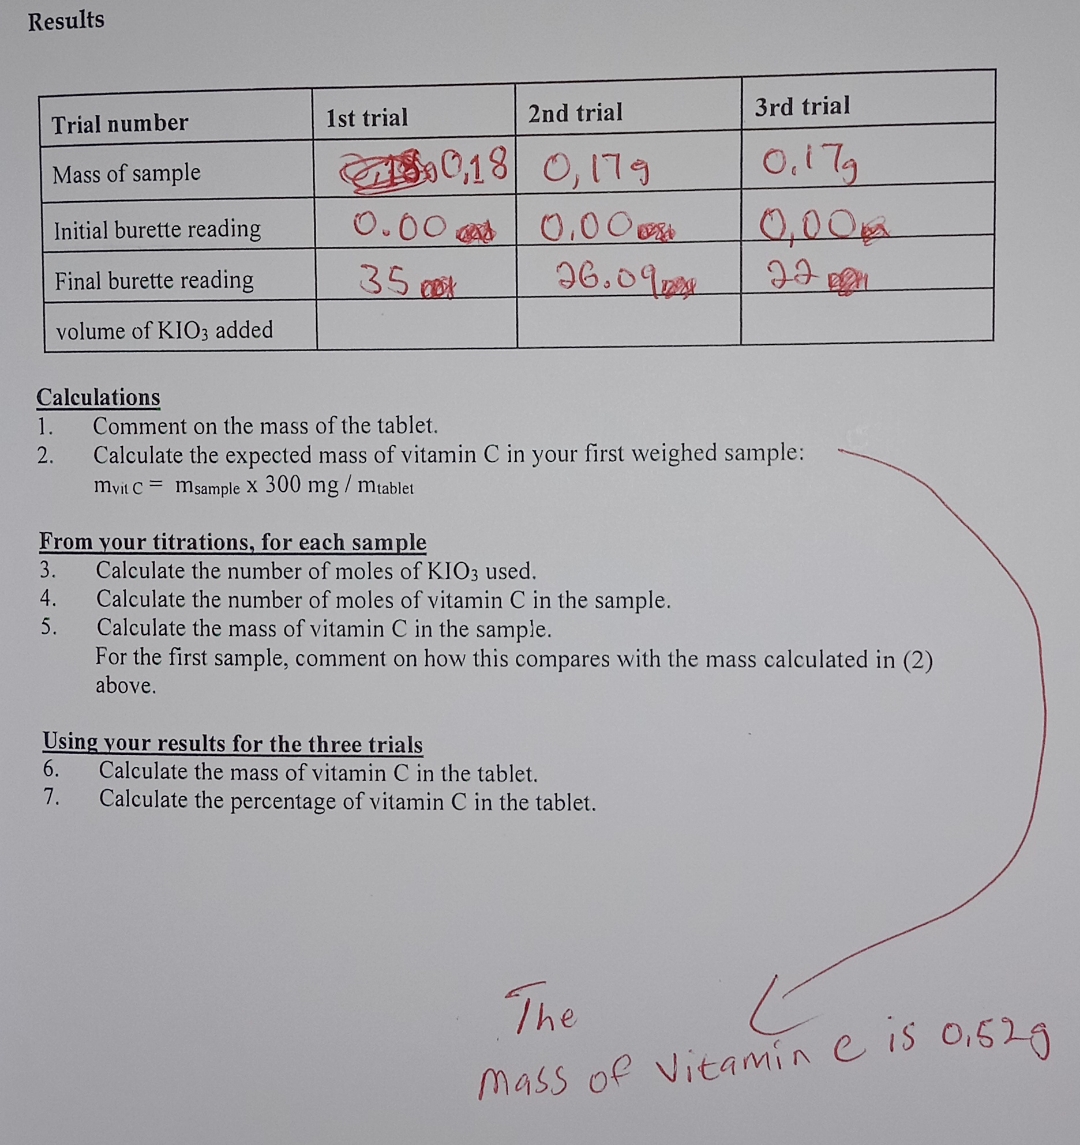 Results
Trial number 1st trial 2nd trial 3rd trial
Mass of sample 0,18 0,17g 0.17g
Initial burette reading 0.00 0.00 0,00
Final burette reading 35 26.09 22
volume of KIO₃ added
Calculations
1. Comment on the mass of the tablet.
2. Calculate the expected mass of vitamin C in your first weighed sample:
mvit C = msample x 300 mg / mtablet
From your titrations, for each sample
3. Calculate the number of moles of KIO₃ used.
4. Calculate the number of moles of vitamin C in the sample.
5. Calculate the mass of vitamin C in the sample.
For the first sample, comment on how this compares with the mass calculated in (2)
above.
Using your results for the three trials
6. Calculate the mass of vitamin C in the tablet.
7. Calculate the percentage of vitamin C in the tablet.
The
mass of vitamin c is 0,52g